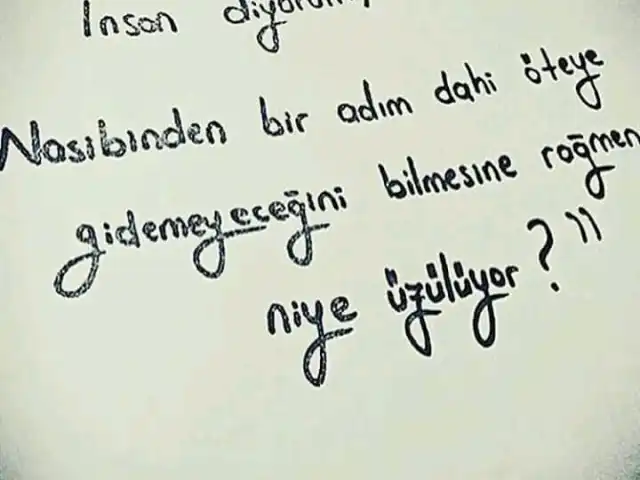 İnsan diyorum,
Nasibinden bir adım dahi öteye
gidemeyeceğini bilmesine rağmen
niye üzülüyor?"